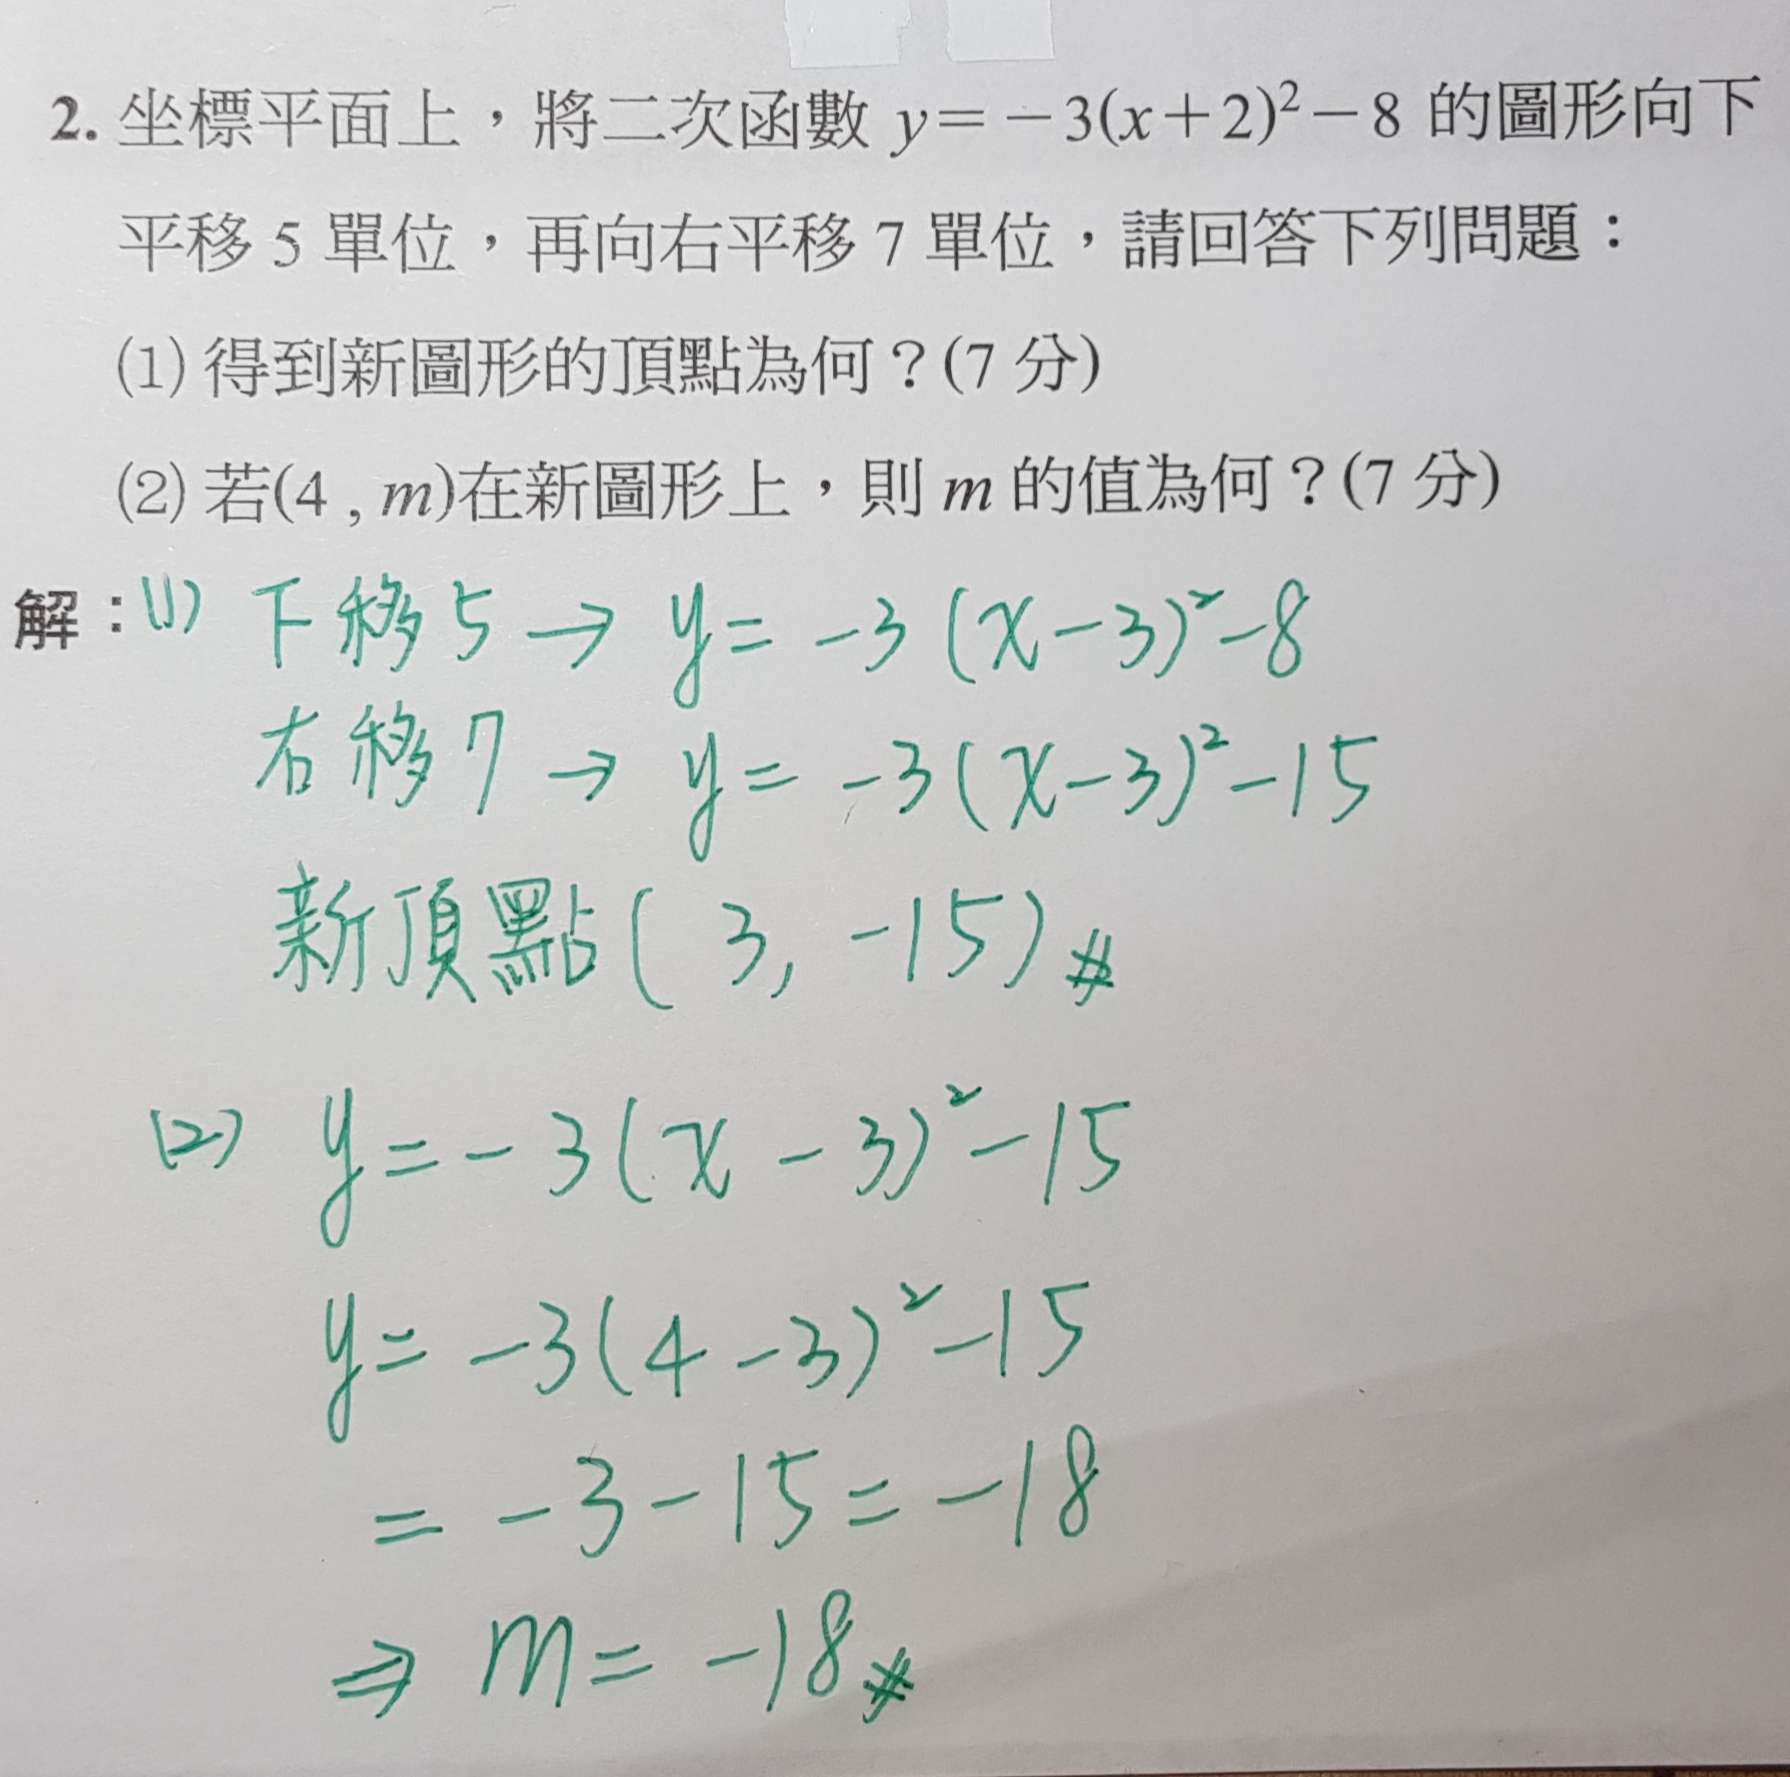 2. 坐標平面上，將二次函數 y=－3(x＋2)²－8 的圖形向下
平移 5 單位，再向右平移 7 單位，請回答下列問題：
(1) 得到新圖形的頂點為何？(7 分)
(2) 若(4 , m)在新圖形上，則 m 的值為何？(7 分)
解：(1) 下移 5 → y = -3 (x-3)²-8
右移 7 → y = -3(x-3)²-15
新頂點( 3, -15)#
(2) y = -3(x - 3)²-15
y = -3(4 -3)²-15
= -3-15 = -18
⇒ m = -18#